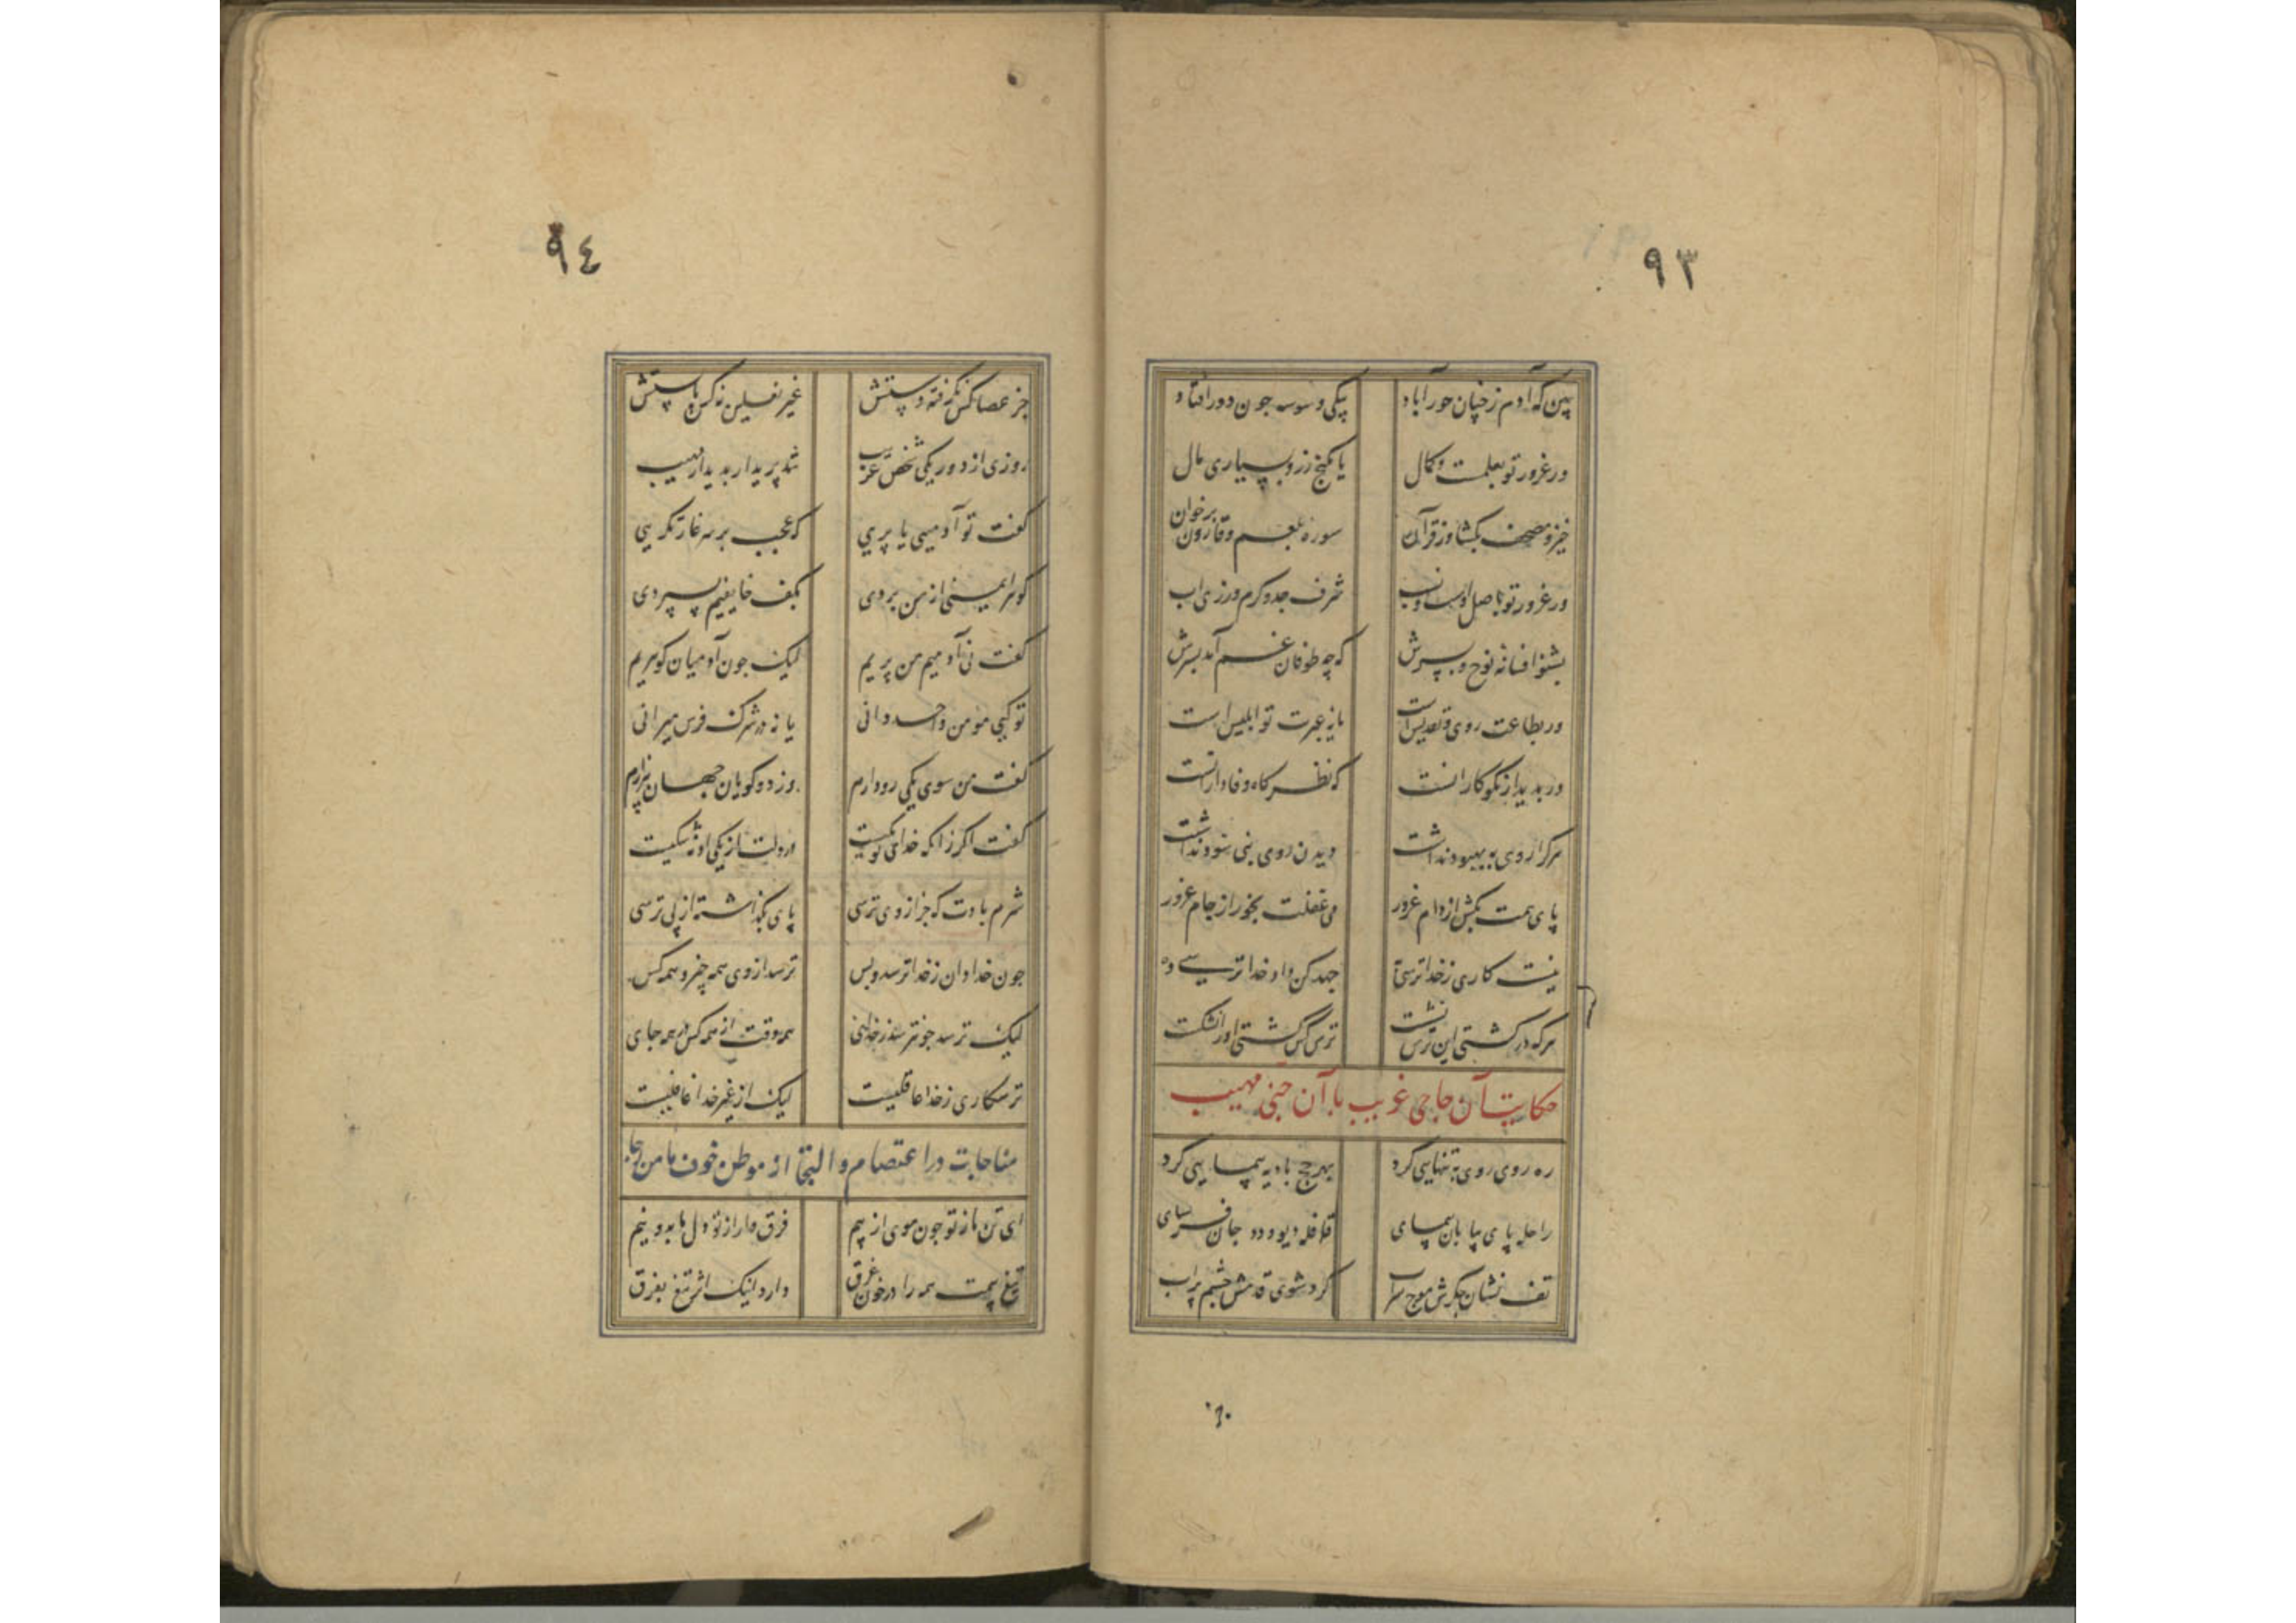 ٩٣
ببین که آدم ز خیان حور آباد بیکی وسوسه جون دور افتاد
ور غرور تو بعلمست و کمال یا بگنج زر و بسیاری مال
خیز و مصحف بکشا وز قرآن سوره بلعم و قارون برخوان
ور غرور تو باصل است و نسب شرف جد و کرم ورزی اب
بشنو افسانه نوح و پسرش که چه طوفان غم آمد بسرش
ور بطاعت روی و تقدیس است مایه عبرت تو ابلیس است
ور بدیدار نکوکارانست که نظر کاه وفادارانست
هر کرا روی به بهبود نداشت دیدن روی نبی سود نداشت
پای همت بکش از دام غرور می غفلت مخور از جام غرور
نیست کاری ز خدا ترسی به جهد کن داد خدا ترسی ده
هر که در کشتی این ترس نشست ترس کس کشتی او را نشکست
حکایت آن حاجی غریب با آن جنی مهیب
ره روی روی به تنهایی کرد بهر حج بادیه پیمایی کرد
راحله پای بیابان پیمای قافله دیو و دد جان فرسای
تف نشان جکرش موج سراب کرد شوی قدمش چشم پر آب
٩٤
جز عصا کس نکرفته دستش غیر نعلین نه کس پا بستش
روزی از دور یکی شخص غریب شد پدیدار بدیدار مهیب
کفت تو آدمیی یا پری که عجب بر سر غارتکریی
کوهر ایمنی از من بردی بکف خایفیم بسپردی
کفت نی آدمیم من پریم لیک جون آدمیان کوهریم
تو کیی مومن واحد دانی یا نه در شرک فرس میرانی
کفت من سوی یکی رو دارم وز دو کویان جهان بیزارم
کفت اکر زانکه خدای تو یکیست در دلت از یکی او نه شکیست
شرم بادت که جز از وی ترسی پای بکذاشته از پی ترسی
جون خدا دان ز خدا ترسد و بس ترسد از وی همه چیز و همه کس
لیک ترسد جو نترسد ز خدای همه وقت از همه کس در همه جای
ترسکاری ز خدا عاقلیست لیک از غیر خدا غافلیست
مناجات در اعتصام و التجا از موطن خوف بامن رجا
ای تن ما ز تو جون موی از بیم فرق ما را ز تو دل ها به دو نیم
تیغ بیمت همه را در خون غرق دارد اینک اثر تیغ بفرق